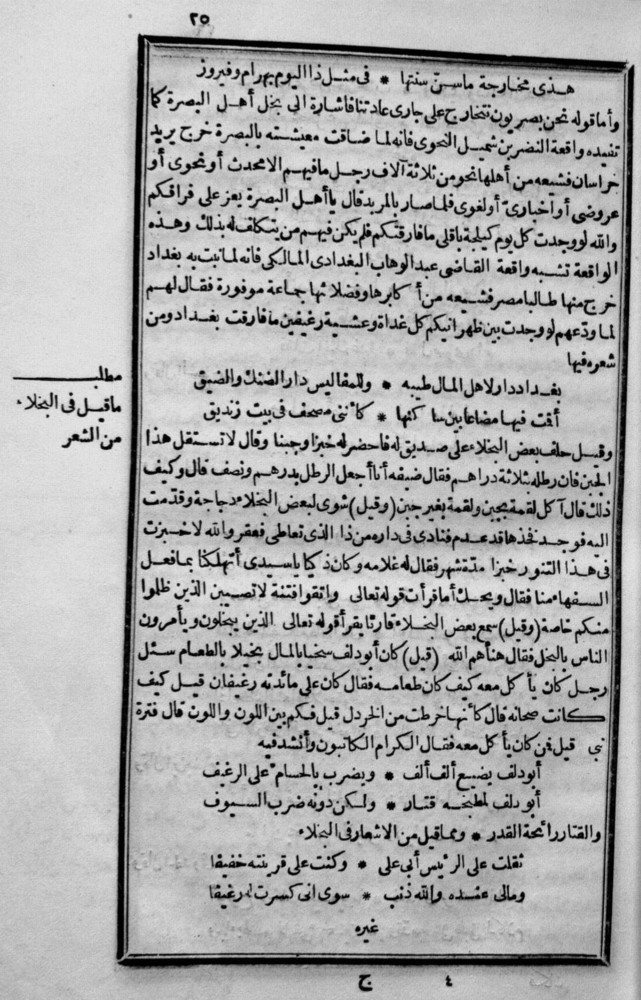 ٢٥
هذى مخارجة ماسن سنتها * فى مثل ذا اليوم بهرام وفيروز
وأما قوله نحن بصريون نتخارج على جارى عادتنا فاشارة الى بخل أهل البصرة كما
تفيده واقعة النضر بن شميل النحوى فانه لما ضاقت معيشته بالبصرة خرج يريد
خراسان فشيعه من أهلها نحو من ثلاثة آلاف رجل مافيهم الا محدث أو نحوى أو
عروضى أو أخبارى أو لغوى فلما صار بالمربد قال يا أهل البصرة يعز على فراقكم
والله لو وجدت كل يوم كيلجة باقلى ما فارقتكم فلم يكن فيهم من يتكلف له بذلك وهذه
الواقعة تشبه واقعة القاضى عبد الوهاب البغدادى المالكى فانه لما نبت به بغداد
خرج منها طالبا مصر فشيعه من أكابرها وفضلائها جماعة موفورة فقال لهم
لما ودعهم لو وجدت بين ظهرانيكم كل غداة وعشية رغيفين ما فارقت بغداد ومن
شعره فيها
بغداد دار لاهل المال طيبه * وللمفاليس دار الضنك والضيق
أقت فيها مضاعا بين ساكنها * كأننى مصحف فى بيت زنديق
مطلب
ماقيل فى البخلاء
من الشعر
وقيل حلف بعض البخلاء على صديق له فاحضر له خبزا وجبنا وقال لا تستقل هذا
الجبن فان رطله بثلاثة دراهم فقال ضيفه أنا أجعل الرطل بدرهم ونصف قال وكيف
ذلك قال آكل لقمة بجبن ولقمة بغير جبن (وقيل) شوى لبعض البخلاء دجاجة وقدّمت
اليه فوجد فخذها قد عدم فنادى فى داره من ذا الذى تعاطى فعقر والله لا خبزت
فى هذا التنور خبزا مدّة شهر فقال له غلامه وكان ذكيا ياسيدى أتهلكنا بما فعل
السفهاء منا فقال ويحك أما قرأت قوله تعالى واتقوا فتنة لا تصيبن الذين ظلموا
منكم خاصة (وقيل) سمع بعض البخلاء قارئا يقرأ قوله تعالى الذين يبخلون ويأمرون
الناس بالبخل فقال هنأهم الله (قيل) كان أبودلف سخيا بالمال بخيلا بالطعام سئل
رجل كان يأكل معه كيف كان طعامه فقال كان على مائدته رغيفان قيل كيف
كانت صحانه قال كأنها خرطت من الخردل قيل فكم بين اللون واللون قال فترة
نبى قيل فمن كان يأكل معه فقال الكرام الكاتبون وأنشد فيه
أبودلف يضيع ألف ألف * ويضرب بالحسام على الرغيف
أبودلف لمطبخه قتار * ولكن دونه ضرب السيوف
والقتار رائحة القدر * ومماقيل من الاشعار فى البخلاء
ثقلت على الرئيس أبى على * وكنت على قرينته خفيفا
ومالى عنده والله ذنب * سوى انى كسرت له رغيفا
غيره
٤ ج